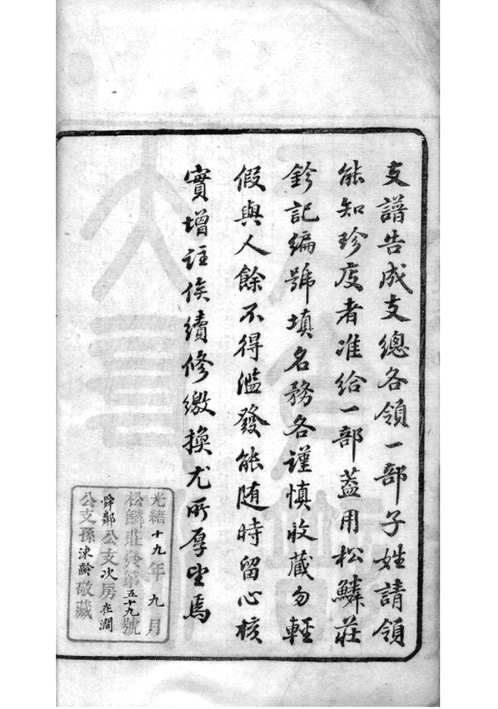 支譜告成支總各領一部子姓請領
能知珍度者准給一部蓋用松鱗莊
鈐記編號填名務各謹慎收藏勿輕
假與人餘不得濫發能随時留心核
實增註俟續修繳換尤所厚望焉
光緒十九年九月
松鱗莊發第五十九號
舜鄰公支次房在澗
公支孫涑齡敬藏